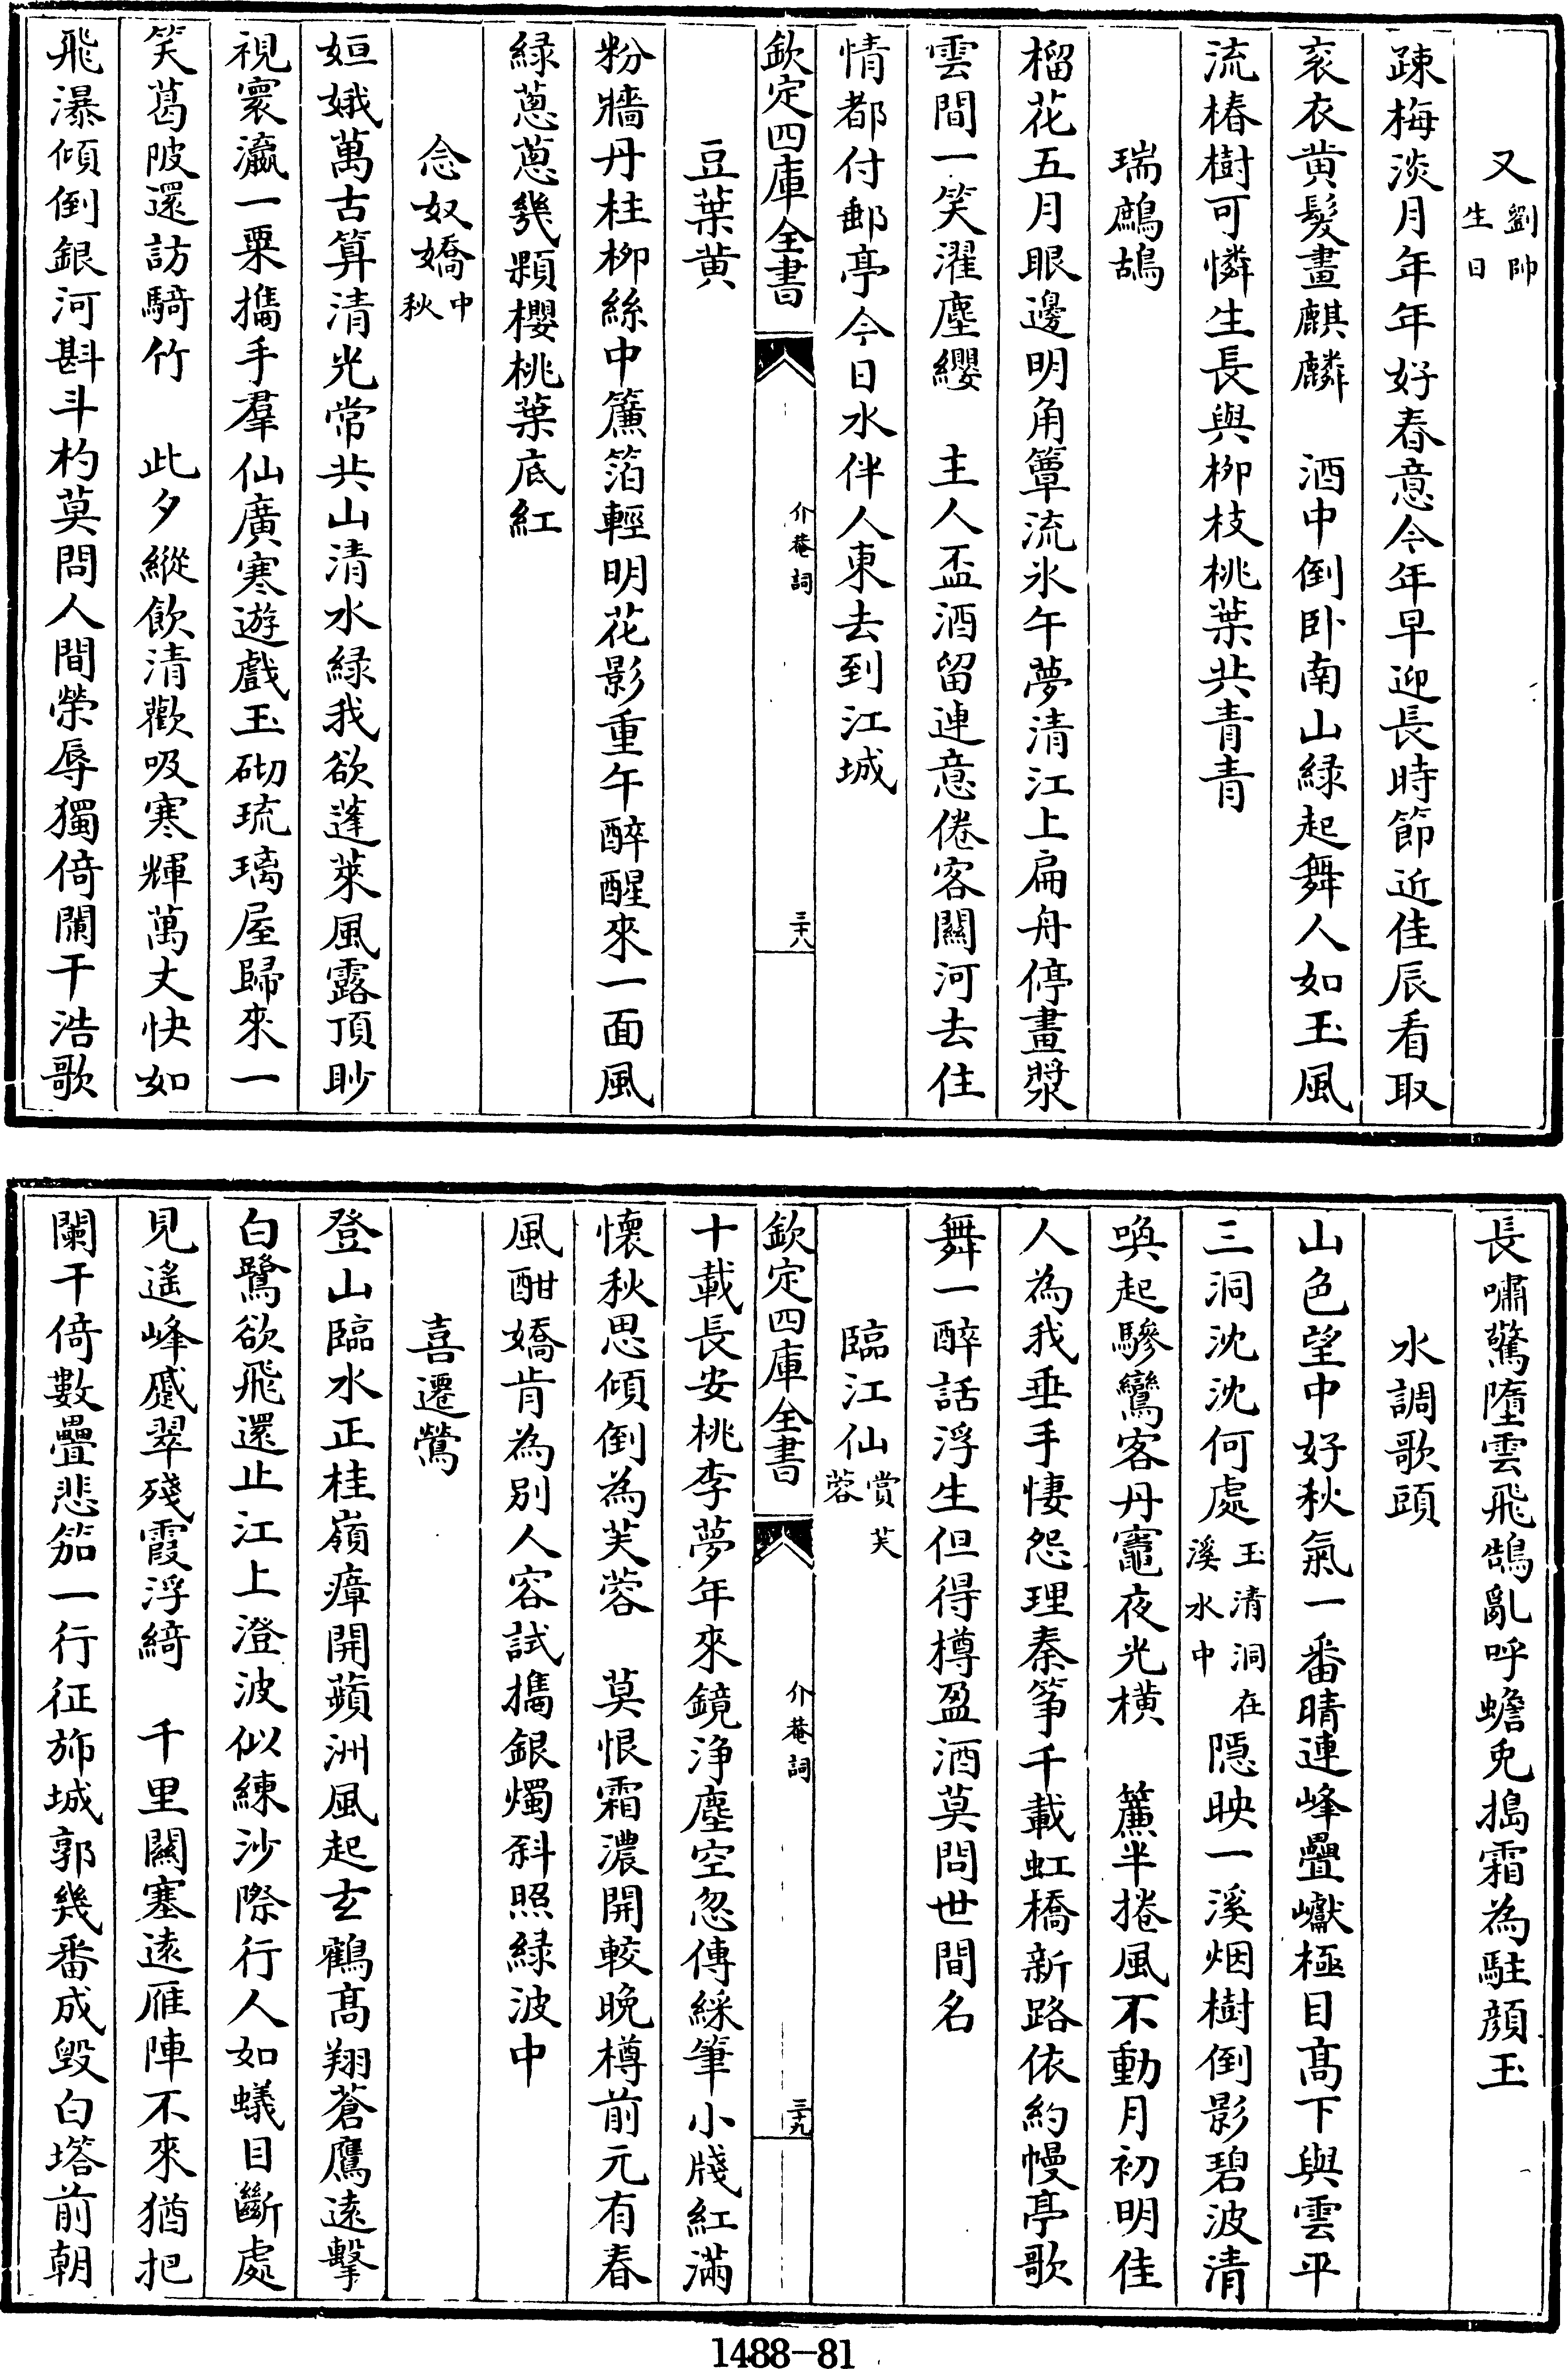 又劉帥生日
疎梅淡月年年好春意今年早迎長時節近佳辰看取
衮衣黄髮畫麒麟　酒中倒卧南山緑起舞人如玉風
流椿樹可憐生長與柳枝桃葉共青青
瑞鷓鴣
榴花五月眼邊明角簟流氷午夢清江上扁舟停畫槳
雲間一笑濯塵纓　主人盃酒留連意倦客闗河去住
情都付郵亭今日水伴人東去到江城
欽定四庫全書
介菴詞
三十八
豆葉黄
粉牆丹柱柳絲中簾箔輕明花影重午醉醒來一面風
緑蔥蔥幾顆櫻桃葉底紅
念奴嬌中秋
姮娥萬古算清光常共山清水緑我欲蓬萊風露頂眇
視寰瀛一粟攜手羣仙廣寒遊戲玉砌琉璃屋歸來一
笑葛陂還訪騎竹　此夕縱飲清歡吸寒輝萬丈快如
飛瀑傾倒銀河斟斗杓莫問人間榮辱獨倚闌干浩歌
長嘯驚墮雲飛鵠亂呼蟾兔搗霜為駐顔玉
水調歌頭
山色望中好秋氣一番晴連峰疊巘極目髙下與雲平
三洞沈沈何處玉清洞在溪水中隱映一溪烟樹倒影碧波清
喚起驂鸞客丹竈夜光横　簾半捲風不動月初明佳
人為我垂手悽怨理秦筝千載虹橋新路依約幔亭歌
舞一醉話浮生但得樽盈酒莫問世間名
臨江仙賞芙蓉
欽定四庫全書
介菴詞
三十九
十載長安桃李夢年來鏡浄塵空忽傳綵筆小牋紅滿
懷秋思傾倒為芙蓉　莫恨霜濃開較晩樽前元有春
風酣嬌肯為別人容試攜銀燭斜照緑波中
喜遷鶯
登山臨水正桂嶺瘴開蘋洲風起玄鶴髙翔蒼鷹遠擊
白鷺欲飛還止江上澄波似練沙際行人如蟻目斷處
見遙峰蹙翠殘霞浮綺　千里闗塞遠雁陣不來猶把
闌干倚數疊悲笳一行征斾城郭幾番成毁白塔前朝
1488-81